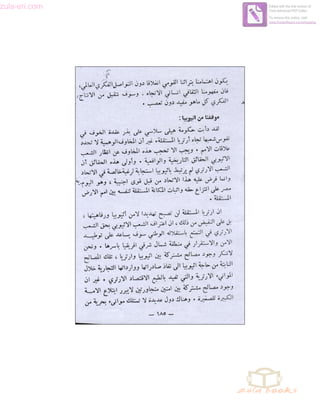 zula-eri.com
يكون اهتمامنا بتراثنا القومي انغلاقا دون التواصل الفكري العالمي،
فان مفهومنا الثقافي انساني الاتجاه . وسوف نتقبل من الانتاج
الفكري كل ما هو مفيد دون تعصب .
موقفنا من اثيوبيا :
لقد دأبت حكومة هيلي سلاسي على بذر عقدة الخوف في
نفوس شعبها تجاه أرتريا المستقلة، غير أن المخاوف الوهمية لا تحدد
علاقات الامم . ويجب الا تحجب هذه المخاوف عن انظار الشعب
الاثيوبي الحقائق التاريخية والواقعية . وأولى هذه الحقائق أن
الشعب الارتري لم يرتبط باثيوبيا استجابة لرغبة خالصة في الاتحاد
وانما فرض عليه هذا الاتحاد من قبل قوى اجنبية ، وهو اليوم
مصر على انتزاع حقه واثبات المكانة المستقلة لنفسه بين امم الارض
المستقلة .
ان ارتريا المستقلة لن تصبح تهديدا لامن أثيوبيا ورفاهيتها ،
بل على النقيض من ذلك ، ان اعتراف الشعب الاثيوبي بحق الشعب
الارتري في التمتع باستقلاله الوطني سوف يساعد على توطيد
الامن والاستقرار في منطقة شمال شرقي افريقيا باسرها . ونحن
لا ننكر وجود مصالح مشتركة بين اثيوبيا وارتريا ، تلك المصالح
النابتة من حاجة اثيوبيا الى نفاذ صادراتها ووارداتها التجارية خلال
الموانىء الارترية والتي تفيد بالطبع الاقتصاد الارتري . غير ان
وجود مصالح مشتركة بين امتين متجاورتين لا يبرر ابتلاع الامة
الكبيرة للصغيرة . وهناك دول عديدة لا تمتلك موانىء بحرية من
— ١٨٥ —